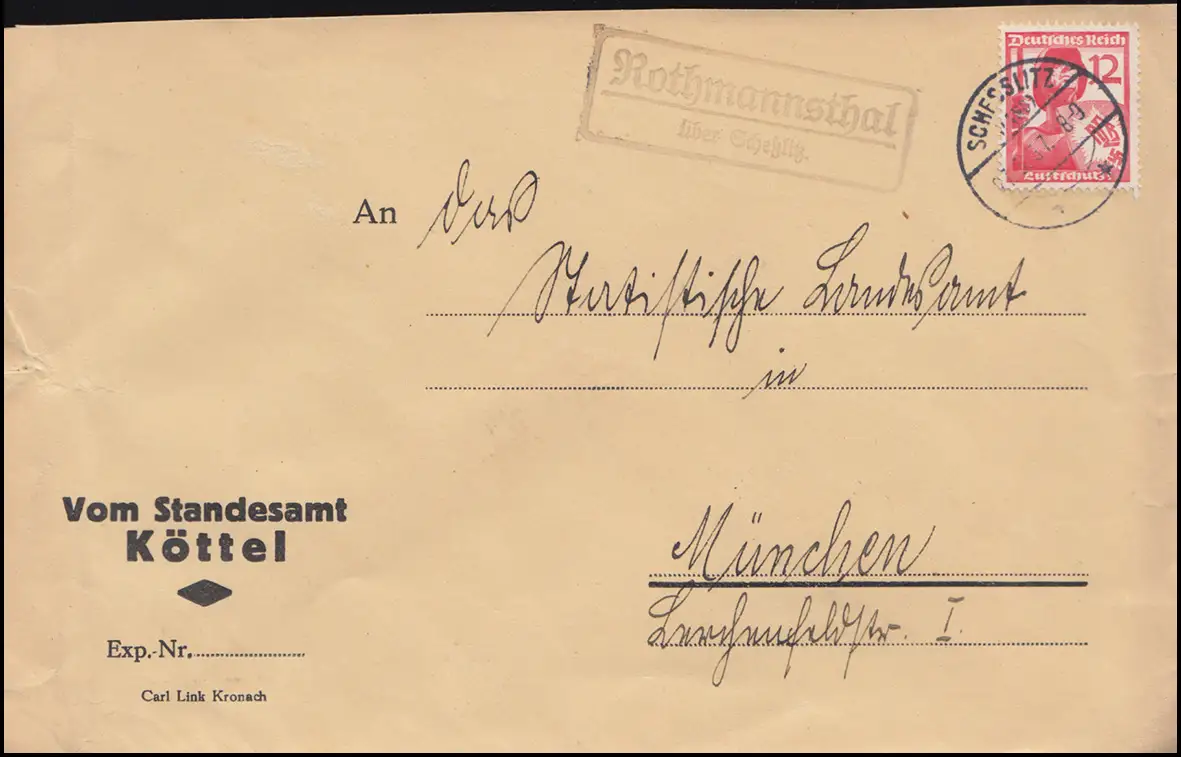 Deutsches Reich
12
Luftschutz
SCHESSLITZ
8-9
Rothmannsthal
über Scheßlitz.
An das
Statistische Landesamt
in
München
Lerchenfeldstr. I.
Vom Standesamt
Köttel
Exp.-Nr.
Carl Link Kronach